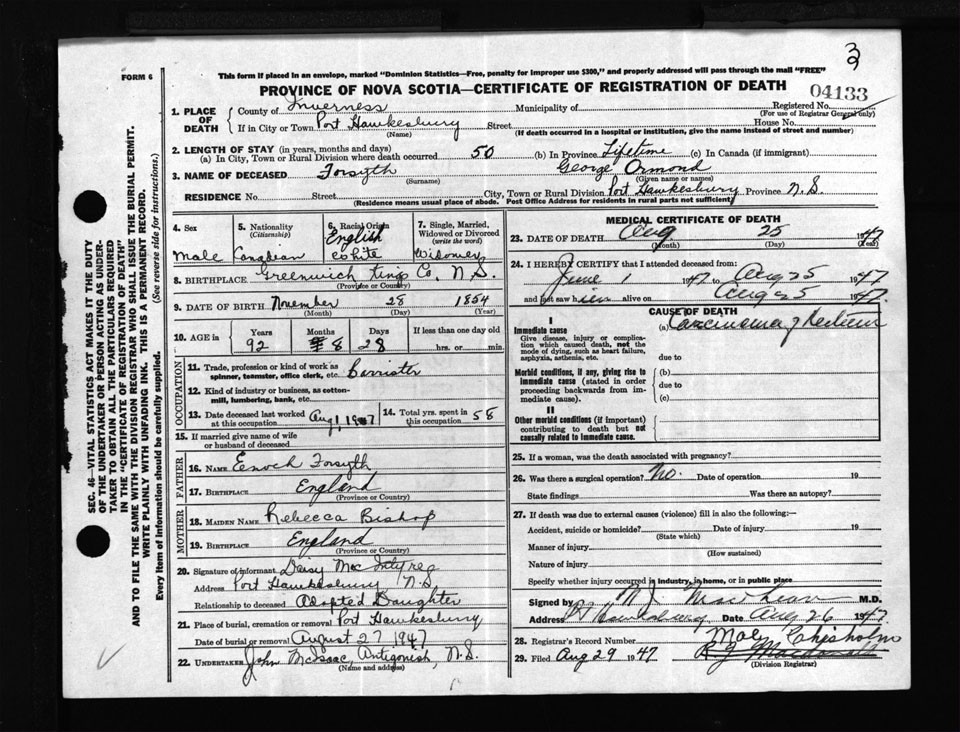 3
FORM 6
This form if placed in an envelope, marked "Dominion Statistics—Free, penalty for improper use $300," and properly addressed will pass through the mail "FREE"
PROVINCE OF NOVA SCOTIA—CERTIFICATE OF REGISTRATION OF DEATH
04133
1. PLACE OF DEATH
County of Inverness Municipality of Registered No.
(For use of Registrar General only)
If in City or Town Port Hawkesbury Street House No.
(Name) (If death occurred in a hospital or institution, give the name instead of street and number)
2. LENGTH OF STAY (in years, months and days)
(a) In City, Town or Rural Division where death occurred 50 (b) In Province Lifetime (c) In Canada (if immigrant)
3. NAME OF DECEASED Forsyth George Ormond
(Surname) (Given name or names)
RESIDENCE No. Street City, Town or Rural Division Port Hawkesbury Province N.S.
(Residence means usual place of abode. Post Office Address for residents in rural parts not sufficient)
4. Sex
Male
5. Nationality
(Citizenship)
Canadian
6. Racial Origin
English
White
7. Single, Married, Widowed or Divorced
(write the word)
8. BIRTHPLACE Greenwich Kings Co. N.S.
(Province or Country)
9. DATE OF BIRTH November 28 1854
(Month) (Day) (Year)
10. AGE in
Years Months Days If less than one day old
92 8 28 hrs. or min.
OCCUPATION
11. Trade, profession or kind of work as spinner, teamster, office clerk, etc. Barrister
12. Kind of industry or business, as cotton-mill, lumbering, bank, etc.
13. Date deceased last worked at this occupation Aug 1 1947
14. Total yrs. spent in this occupation 58
15. If married give name of wife or husband of deceased
FATHER
16. Name Enoch Forsyth
17. Birthplace England
(Province or Country)
MOTHER
18. Maiden Name Rebecca Bishop
19. Birthplace England
(Province or Country)
20. Signature of informant Daisy MacIntyre
Address Port Hawkesbury N.S.
Relationship to deceased Adopted Daughter
21. Place of burial, cremation or removal Port Hawkesbury
Date of burial or removal August 27 1947
22. Undertaker John McIsaac, Antigonish, N.S.
(Name and address)
MEDICAL CERTIFICATE OF DEATH
23. DATE OF DEATH Aug 25 1947
(Month) (Day) (Year)
24. I HEREBY CERTIFY that I attended deceased from:
June 1 1947 to Aug 25 1947
and last saw him alive on Aug 25 1947
CAUSE OF DEATH
I
Immediate cause
Give disease, injury or complication which caused death, not the mode of dying, such as heart failure, asphyxia, asthenia, etc.
(a) Carcinoma of
due to
Morbid conditions, if any, giving rise to immediate cause (stated in order proceeding backwards from immediate cause).
(b)
due to
(c)
II
Other morbid conditions (if important) contributing to death but not causally related to immediate cause.
25. If a woman, was the death associated with pregnancy?
26. Was there a surgical operation? No. Date of operation 19
State findings Was there an autopsy?
27. If death was due to external causes (violence) fill in also the following:—
Accident, suicide or homicide? Date of injury 19
(State which)
Manner of injury
(How sustained)
Nature of injury
Specify whether injury occurred in industry, in home, or in public place
Signed by M.D.
Address Pt Hawkesbury Date Aug 26 1947
28. Registrar's Record Number Chisholm
29. Filed Aug 29 1947 Macdonald
(Division Registrar)
SEC. 46—VITAL STATISTICS ACT MAKES IT THE DUTY
OF THE UNDERTAKER OR PERSON ACTING AS UNDER-
TAKER TO OBTAIN ALL THE PARTICULARS REQUIRED
IN THE "CERTIFICATE OF REGISTRATION OF DEATH"
AND TO FILE THE SAME WITH THE DIVISION REGISTRAR WHO SHALL ISSUE THE BURIAL PERMIT.
WRITE PLAINLY WITH UNFADING INK. THIS IS A PERMANENT RECORD.
Every item of information should be carefully supplied. (See reverse side for instructions.)